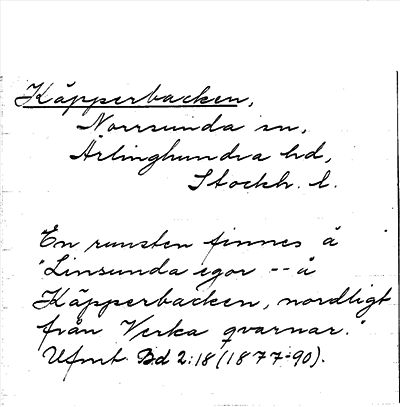 Käpperbacken,
Norrsunda sn,
Ärlinghundra hd,
Stockh. l.
En runsten finnes å
"Linsunda egor -- å
Käpperbacken, nordligt
från Verka qvarnar."
Ufmt. Bd 2:18 (1877-90).